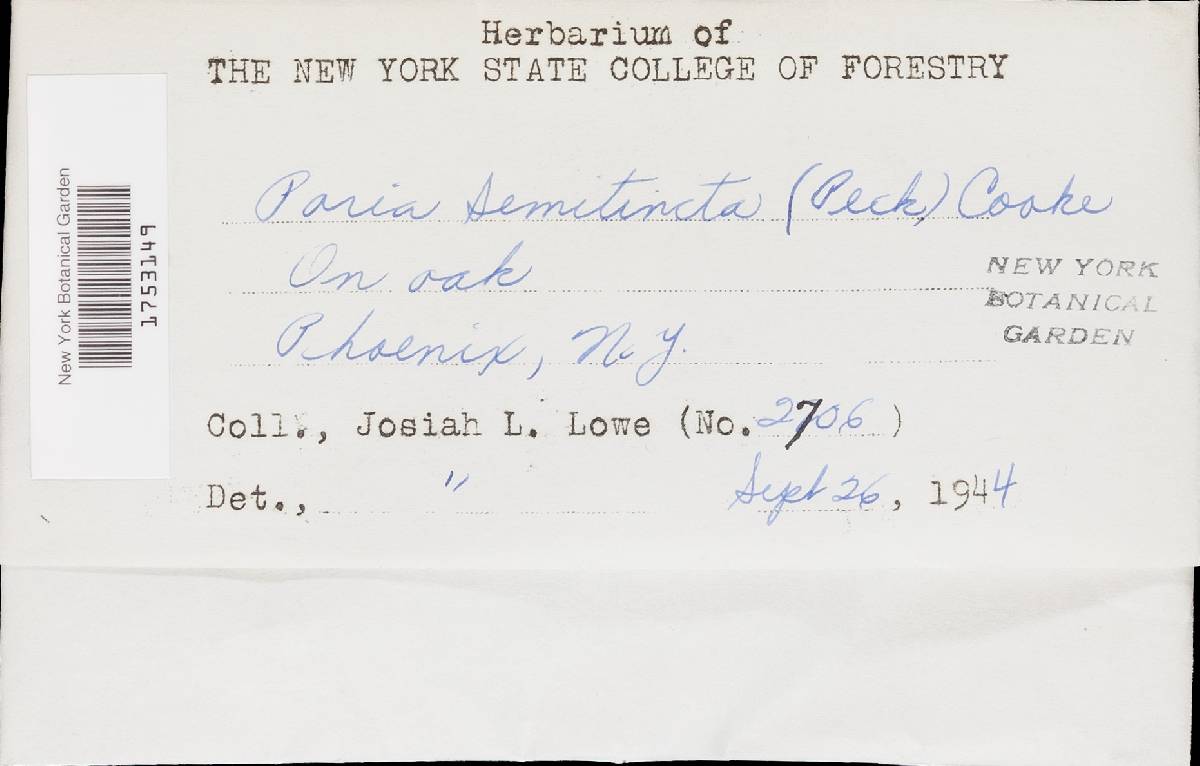 Herbarium of
THE NEW YORK STATE COLLEGE OF FORESTRY
Poria semitincta (Peck) Cooke
On oak
NEW YORK
BOTANICAL
GARDEN
Phoenix, N.Y.
Coll., Josiah L. Lowe (No. 2706 )
Det., " Sept 26, 1944
New York Botanical Garden
1753149